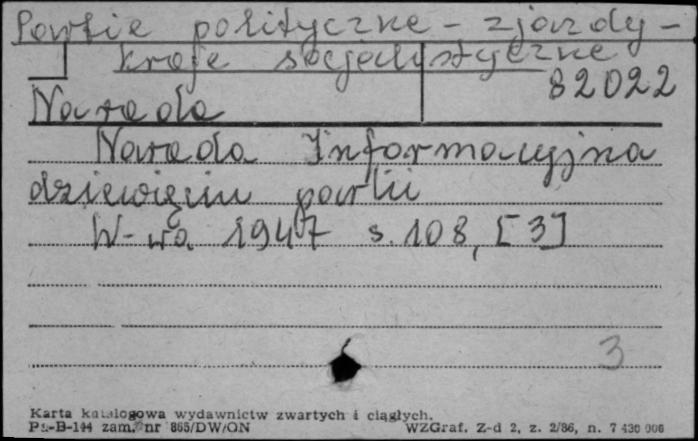 Partie polityczne - zjazdy -
kraje socjalistyczne
82022
Narada
Narada Informacyjna
dziewięciu partii
W-wa 1947 s. 108, [3]
3
Karta katalogowa wydawnictw zwartych i ciągłych.
Pu-B-144 zam. nr 865/DW/ON WZGraf. Z-d 2, z. 2/86, n. 7 430 000